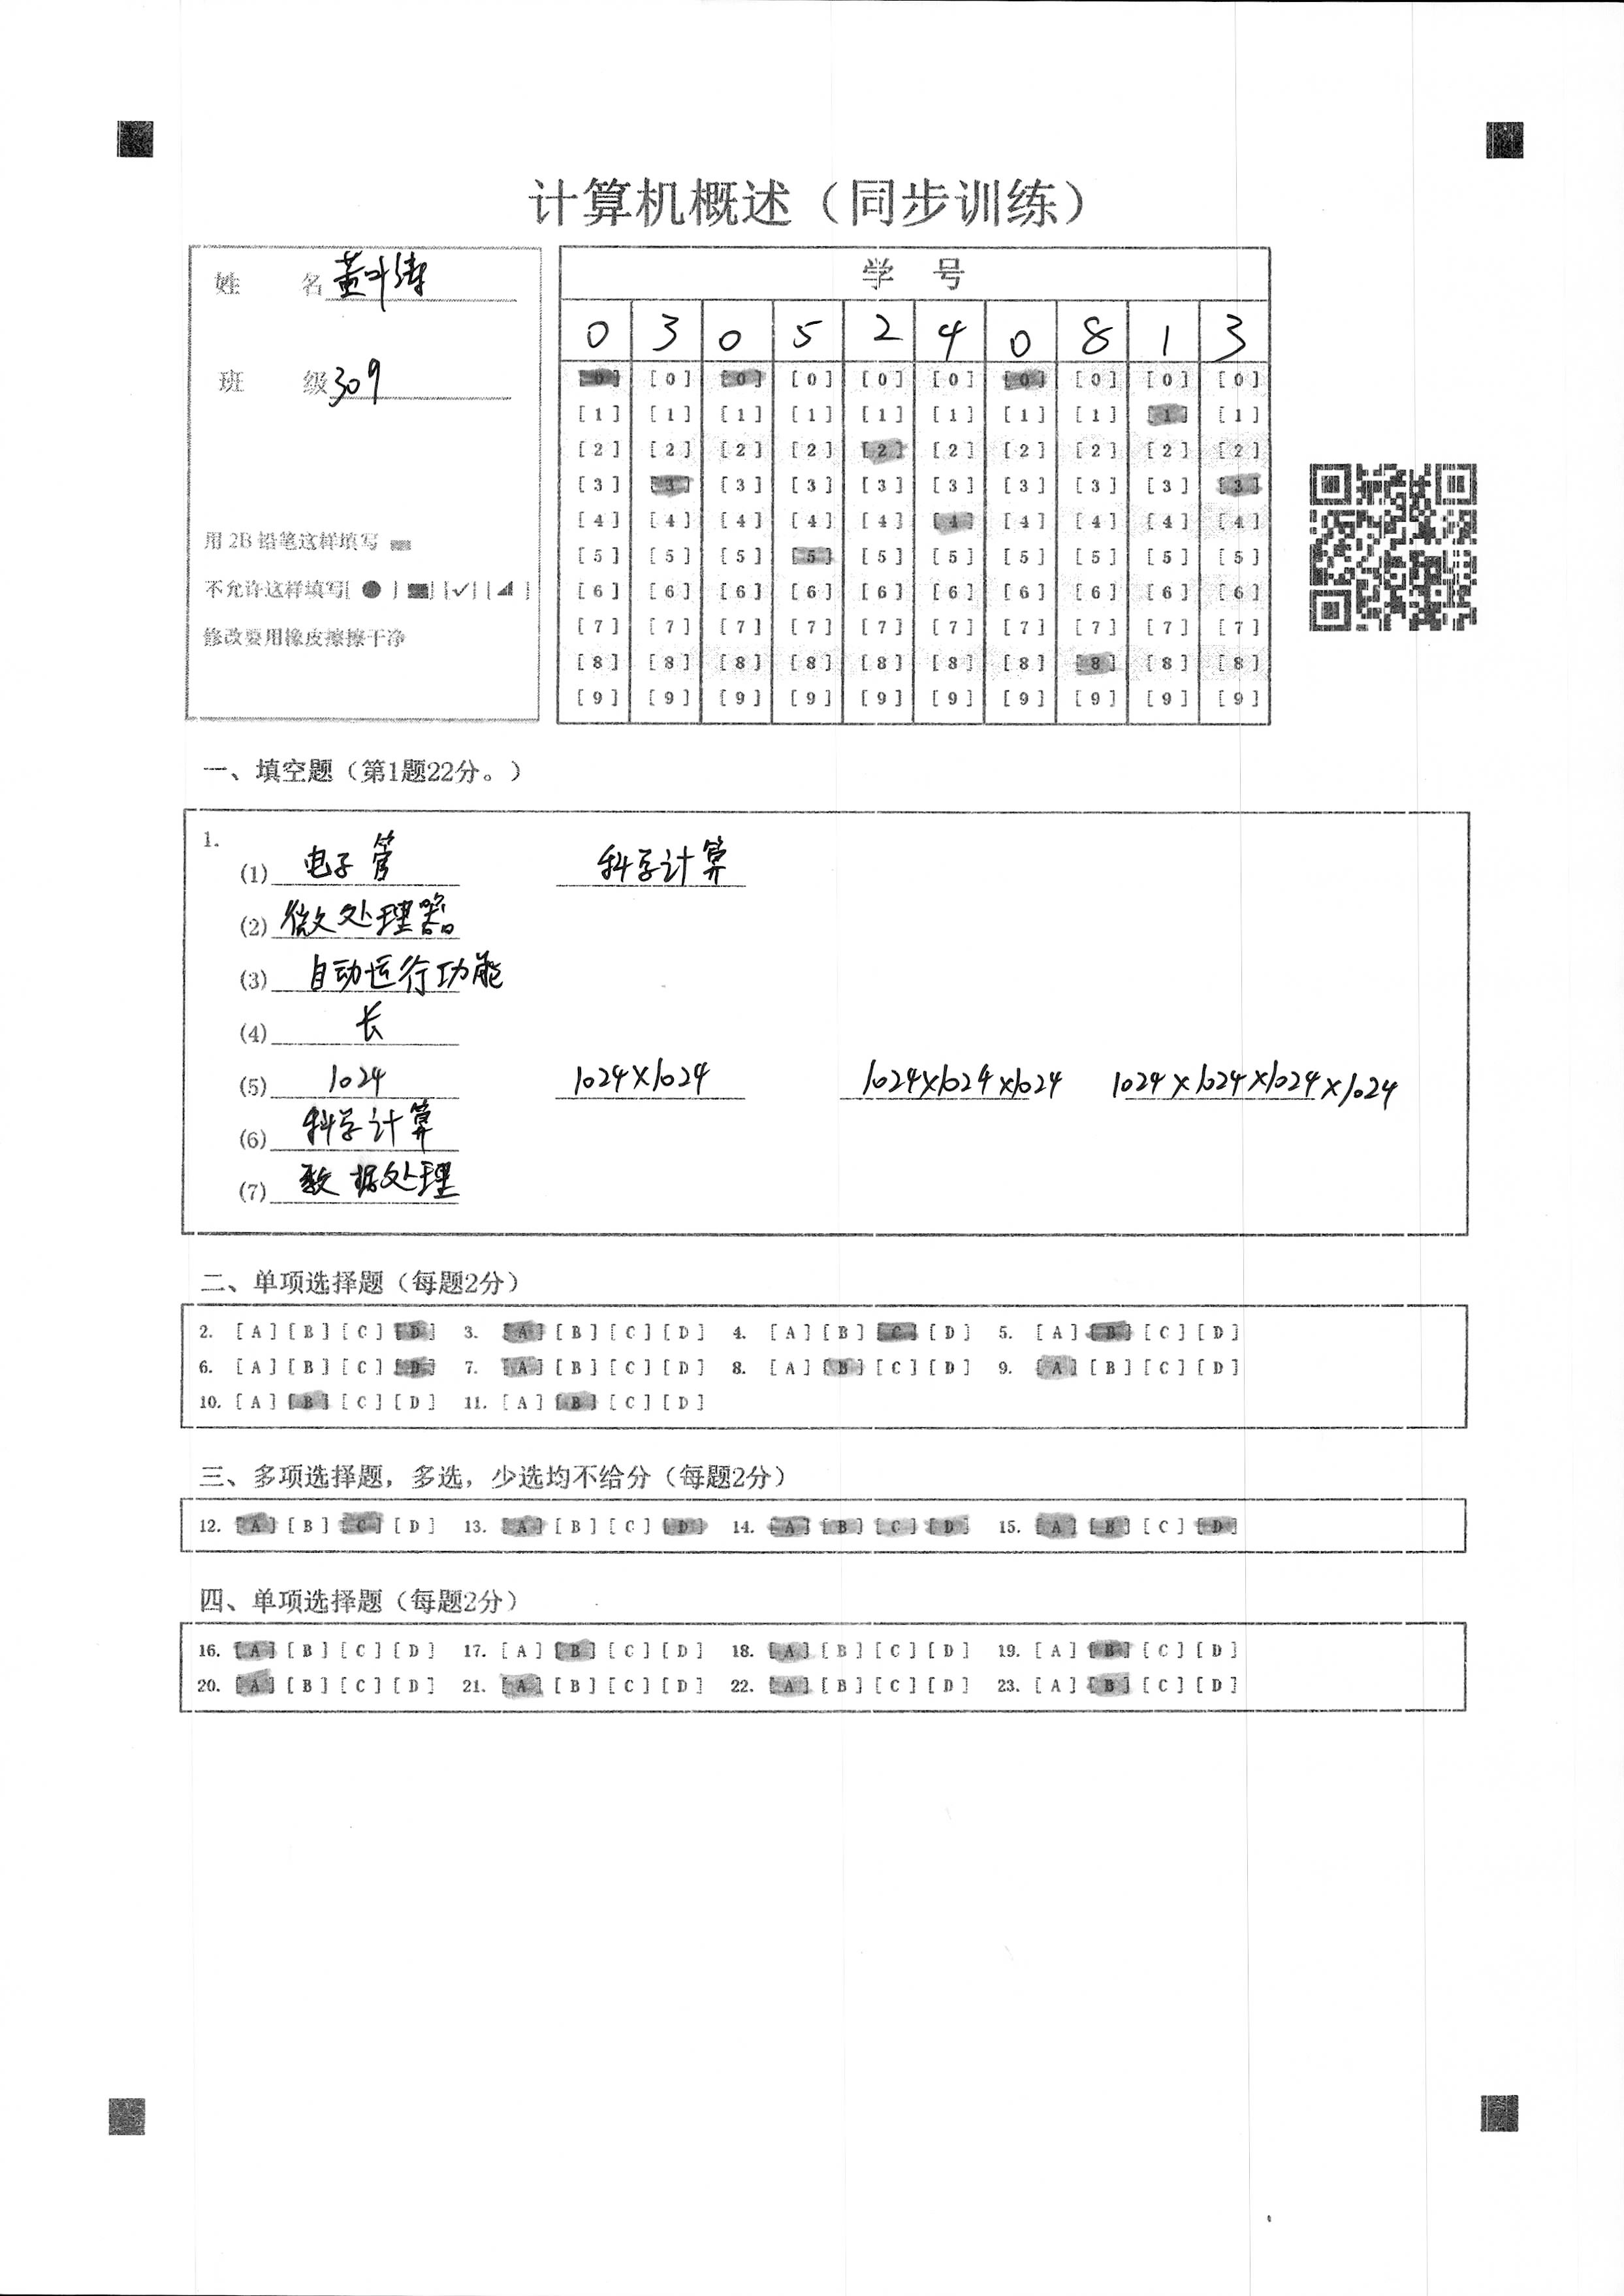 计算机概述（同步训练）
姓 名
班 级 309
用 2B 铅笔这样填写
不允许这样填写[ ● ] [✓] [◢]
修改要用橡皮擦擦干净
学 号
0 3 0 5 2 4 0 8 1 3
[0] [0] [0] [0] [0] [0] [0] [0] [0] [0]
[1] [1] [1] [1] [1] [1] [1] [1] [1] [1]
[2] [2] [2] [2] [2] [2] [2] [2] [2] [2]
[3] [3] [3] [3] [3] [3] [3] [3] [3] [3]
[4] [4] [4] [4] [4] [4] [4] [4] [4] [4]
[5] [5] [5] [5] [5] [5] [5] [5] [5] [5]
[6] [6] [6] [6] [6] [6] [6] [6] [6] [6]
[7] [7] [7] [7] [7] [7] [7] [7] [7] [7]
[8] [8] [8] [8] [8] [8] [8] [8] [8] [8]
[9] [9] [9] [9] [9] [9] [9] [9] [9] [9]
一、填空题（第1题22分。）
1.
(1) 电子管 科学计算
(2) 微处理器
(3) 自动运行功能
(4) 长
(5) 1024 1024×1024 1024×1024×1024 1024×1024×1024×1024
(6) 科学计算
(7) 数据处理
二、单项选择题（每题2分）
2. [A] [B] [C] [D] 3. [A] [B] [C] [D] 4. [A] [B] [C] [D] 5. [A] [B] [C] [D]
6. [A] [B] [C] [D] 7. [A] [B] [C] [D] 8. [A] [B] [C] [D] 9. [A] [B] [C] [D]
10. [A] [B] [C] [D] 11. [A] [B] [C] [D]
三、多项选择题，多选，少选均不给分（每题2分）
12. [A] [B] [C] [D] 13. [A] [B] [C] [D] 14. [A] [B] [C] [D] 15. [A] [B] [C] [D]
四、单项选择题（每题2分）
16. [A] [B] [C] [D] 17. [A] [B] [C] [D] 18. [A] [B] [C] [D] 19. [A] [B] [C] [D]
20. [A] [B] [C] [D] 21. [A] [B] [C] [D] 22. [A] [B] [C] [D] 23. [A] [B] [C] [D]